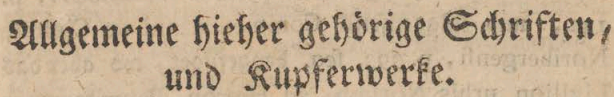 Allgemeine hieher gehörige Schriften,
und Kupferwerke.